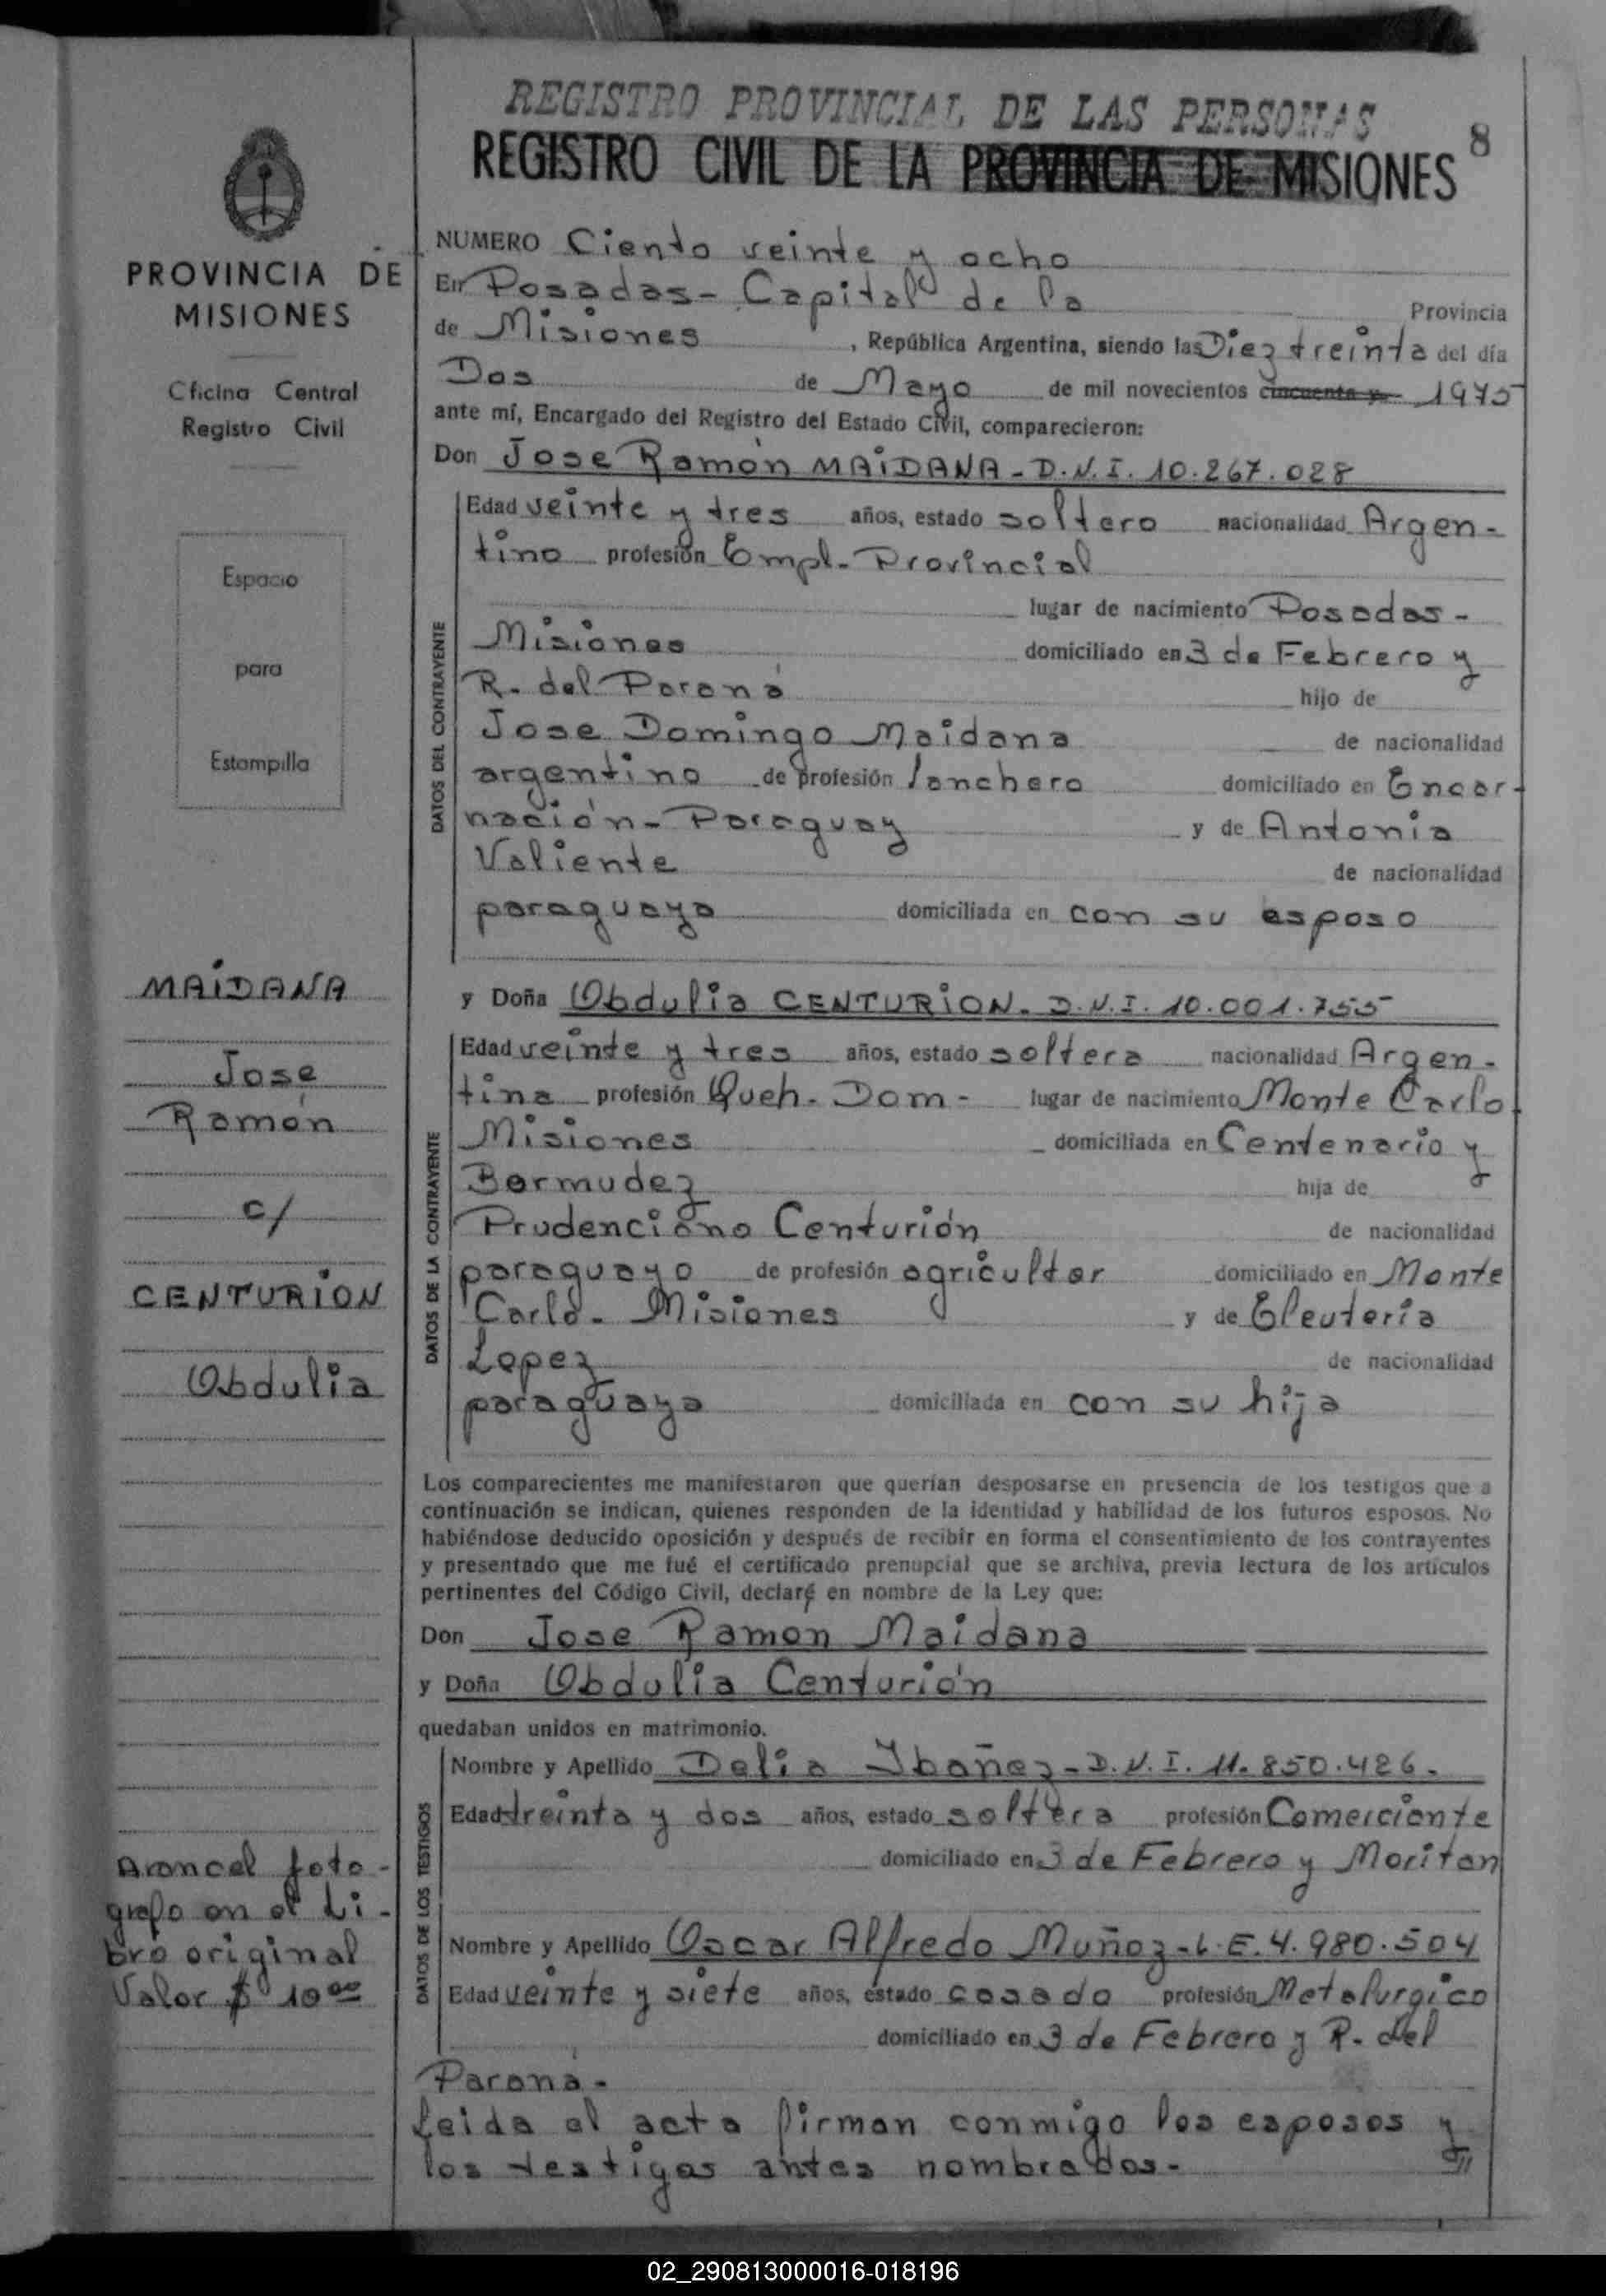 REGISTRO PROVINCIAL DE LAS PERSONAS
8
REGISTRO CIVIL DE LA PROVINCIA DE MISIONES
PROVINCIA DE
MISIONES
Oficina Central
Registro Civil
Espacio
para
Estampilla
MAIDANA
Jose
Ramón
c/
CENTURION
Obdulia
Arancel foto-
grafo en el Li-
bro original
Valor $ 10 00
NUMERO Ciento veinte y ocho
En Posadas - Capital de la Provincia
de Misiones, República Argentina, siendo las Diez treinta del día
Dos de Mayo de mil novecientos cincuenta y 1975
ante mí, Encargado del Registro del Estado Civil, comparecieron:
Don Jose Ramón MAIDANA - D.N.I. 10.267.028
DATOS DEL CONTRAYENTE
Edad veinte y tres años, estado soltero nacionalidad Argen-
tino profesión Empl. Provincial
lugar de nacimiento Posadas -
Misiones domiciliado en 3 de Febrero y
R. del Paraná hijo de
Jose Domingo Maidana de nacionalidad
argentino de profesión lanchero domiciliado en Encar-
nación - Paraguay y de Antonia
Valiente de nacionalidad
paraguaya domiciliada en con su esposo
y Doña Obdulia CENTURION. D.N.I. 10.001.755
DATOS DE LA CONTRAYENTE
Edad veinte y tres años, estado soltera nacionalidad Argen-
tina profesión Queh. Dom - lugar de nacimiento Monte Carlo
Misiones domiciliada en Centenario y
Bermudez hija de
Prudenciano Centurión de nacionalidad
paraguayo de profesión agricultor domiciliado en Monte
Carlo - Misiones y de Eleuteria
Lopez de nacionalidad
paraguaya domiciliada en con su hija
Los comparecientes me manifestaron que querían desposarse en presencia de los testigos que a
continuación se indican, quienes responden de la identidad y habilidad de los futuros esposos. No
habiéndose deducido oposición y después de recibir en forma el consentimiento de los contrayentes
y presentado que me fué el certificado prenupcial que se archiva, previa lectura de los artículos
pertinentes del Código Civil, declaré en nombre de la Ley que:
Don Jose Ramon Maidana
y Doña Obdulia Centurión
quedaban unidos en matrimonio.
DATOS DE LOS TESTIGOS
Nombre y Apellido Delia Ibañez - D.N.I. 11.850.426.
Edad treinta y dos años, estado soltera profesión Comerciante
domiciliado en 3 de Febrero y Moritan
Nombre y Apellido Oscar Alfredo Muñoz - L.E. 4.980.504
Edad veinte y siete años, estado casado profesión Metalurgico
domiciliado en 3 de Febrero y R. del
Paraná -
Leida el acta firman conmigo los esposos y
los testigos antes nombrados -
02_290813000016-018196